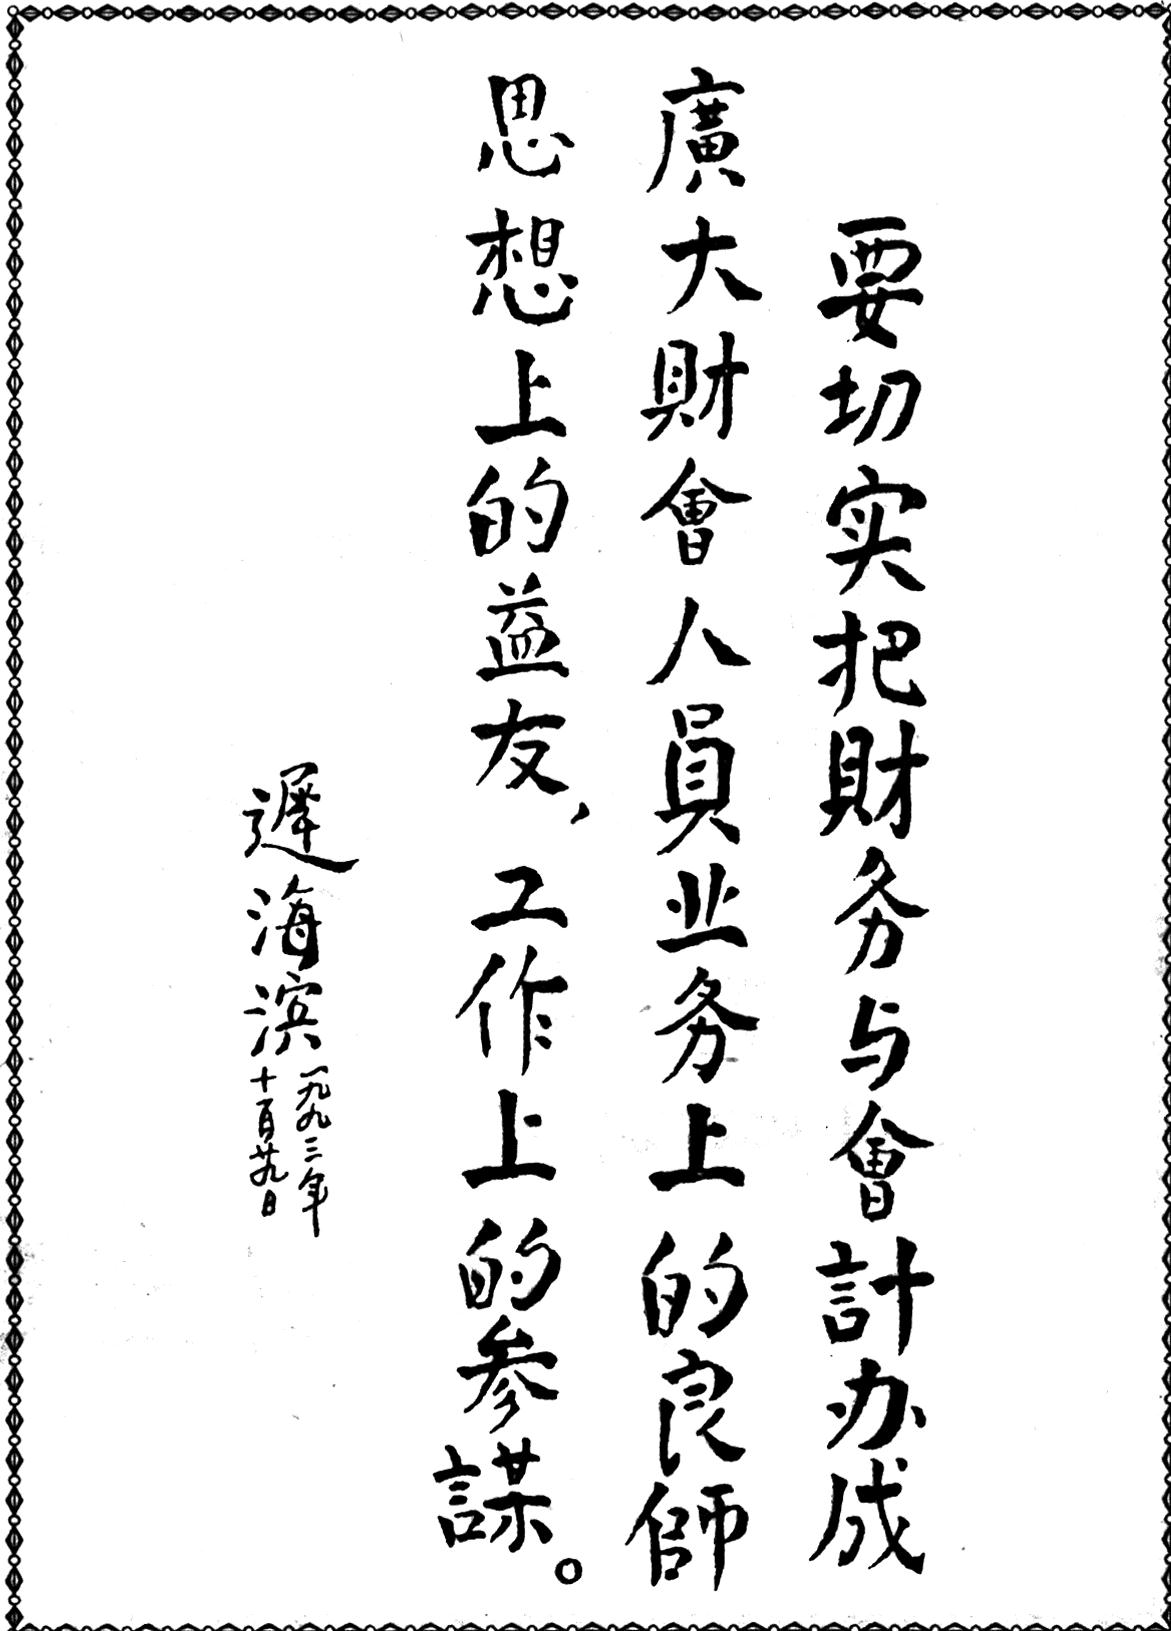 要切实把財务与會計办成
廣大財會人員业务上的良師
思想上的益友、工作上的参謀。
遲海滨
一九九三年
十一月廿九日